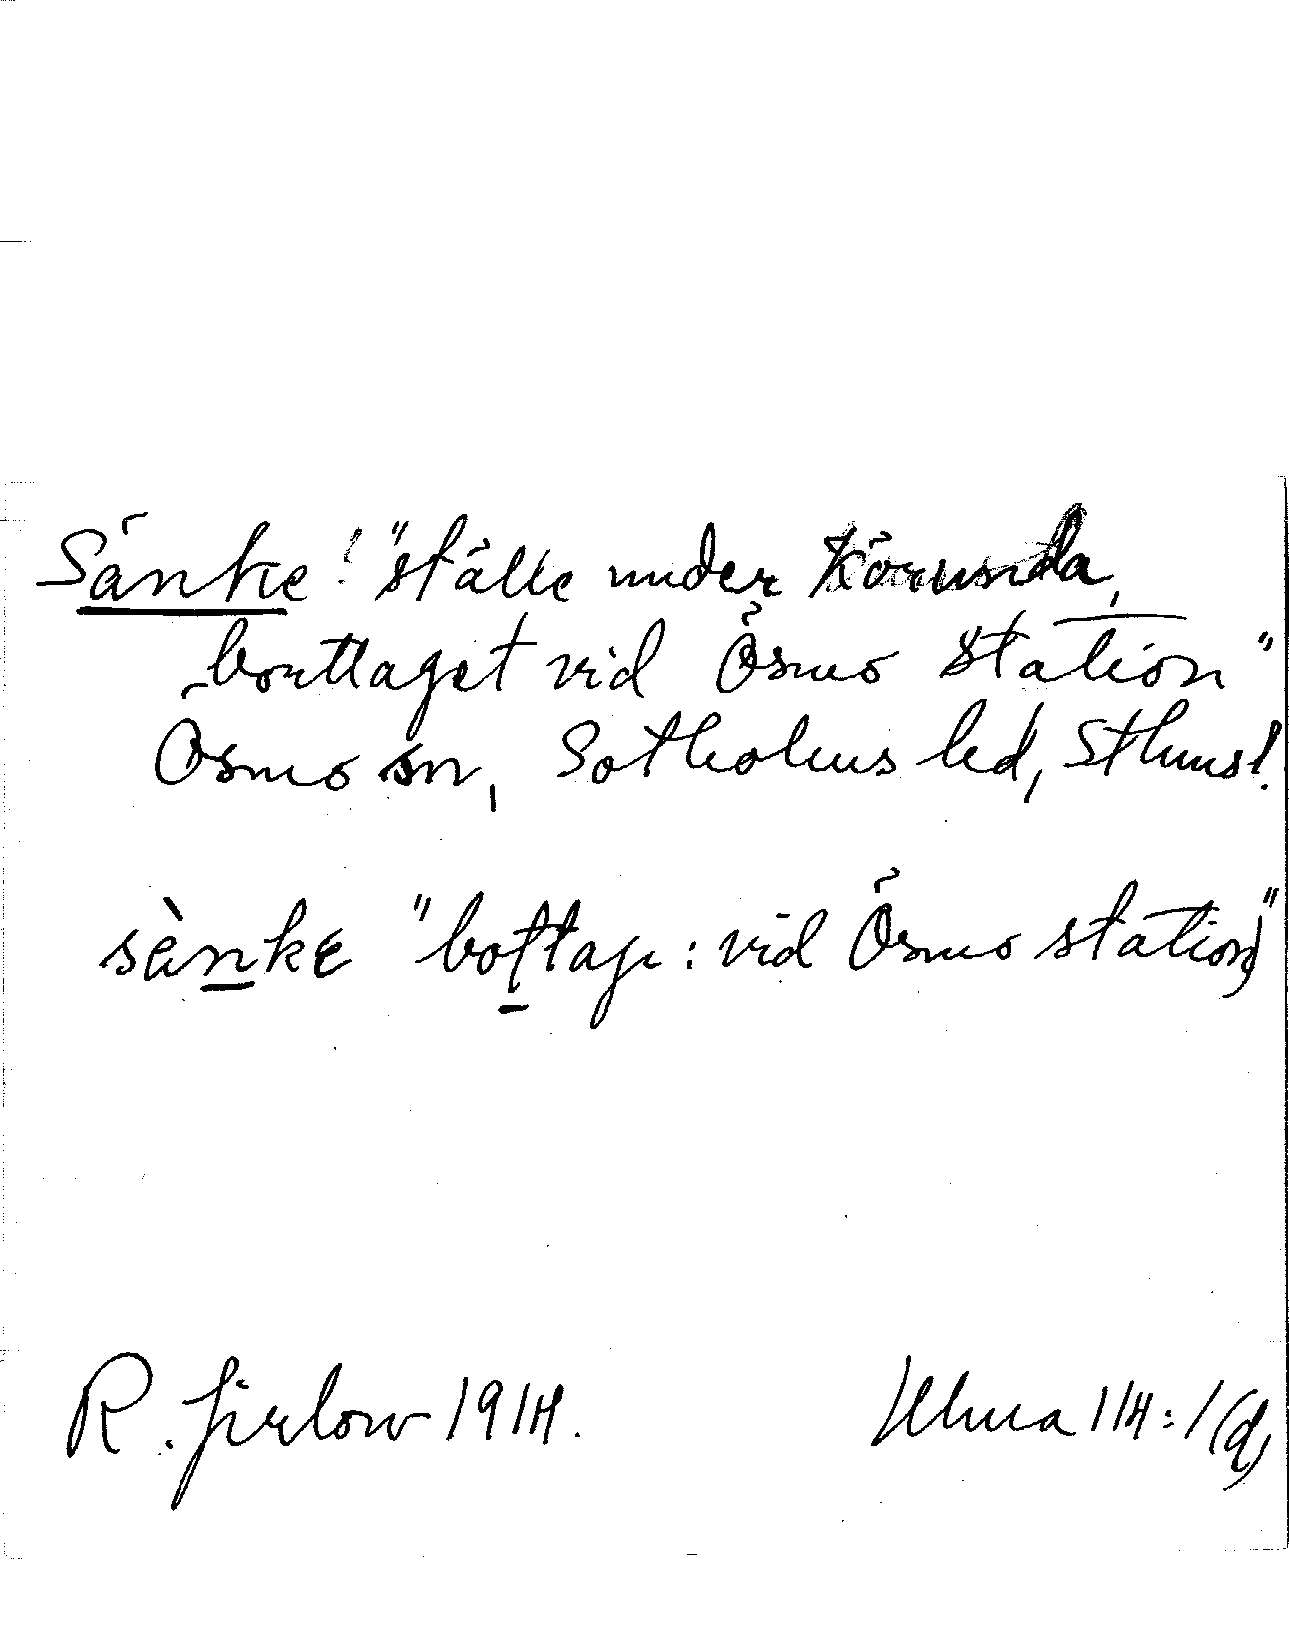 Sänke! "ställe under Körunda,
borttaget vid Ösmo station"
Ösmo sn, Sotholms hd, Sthms l.
sänke "bottage: vid Ösmo station"
R. Jirlow 1914.
Ulma 114:1(d)